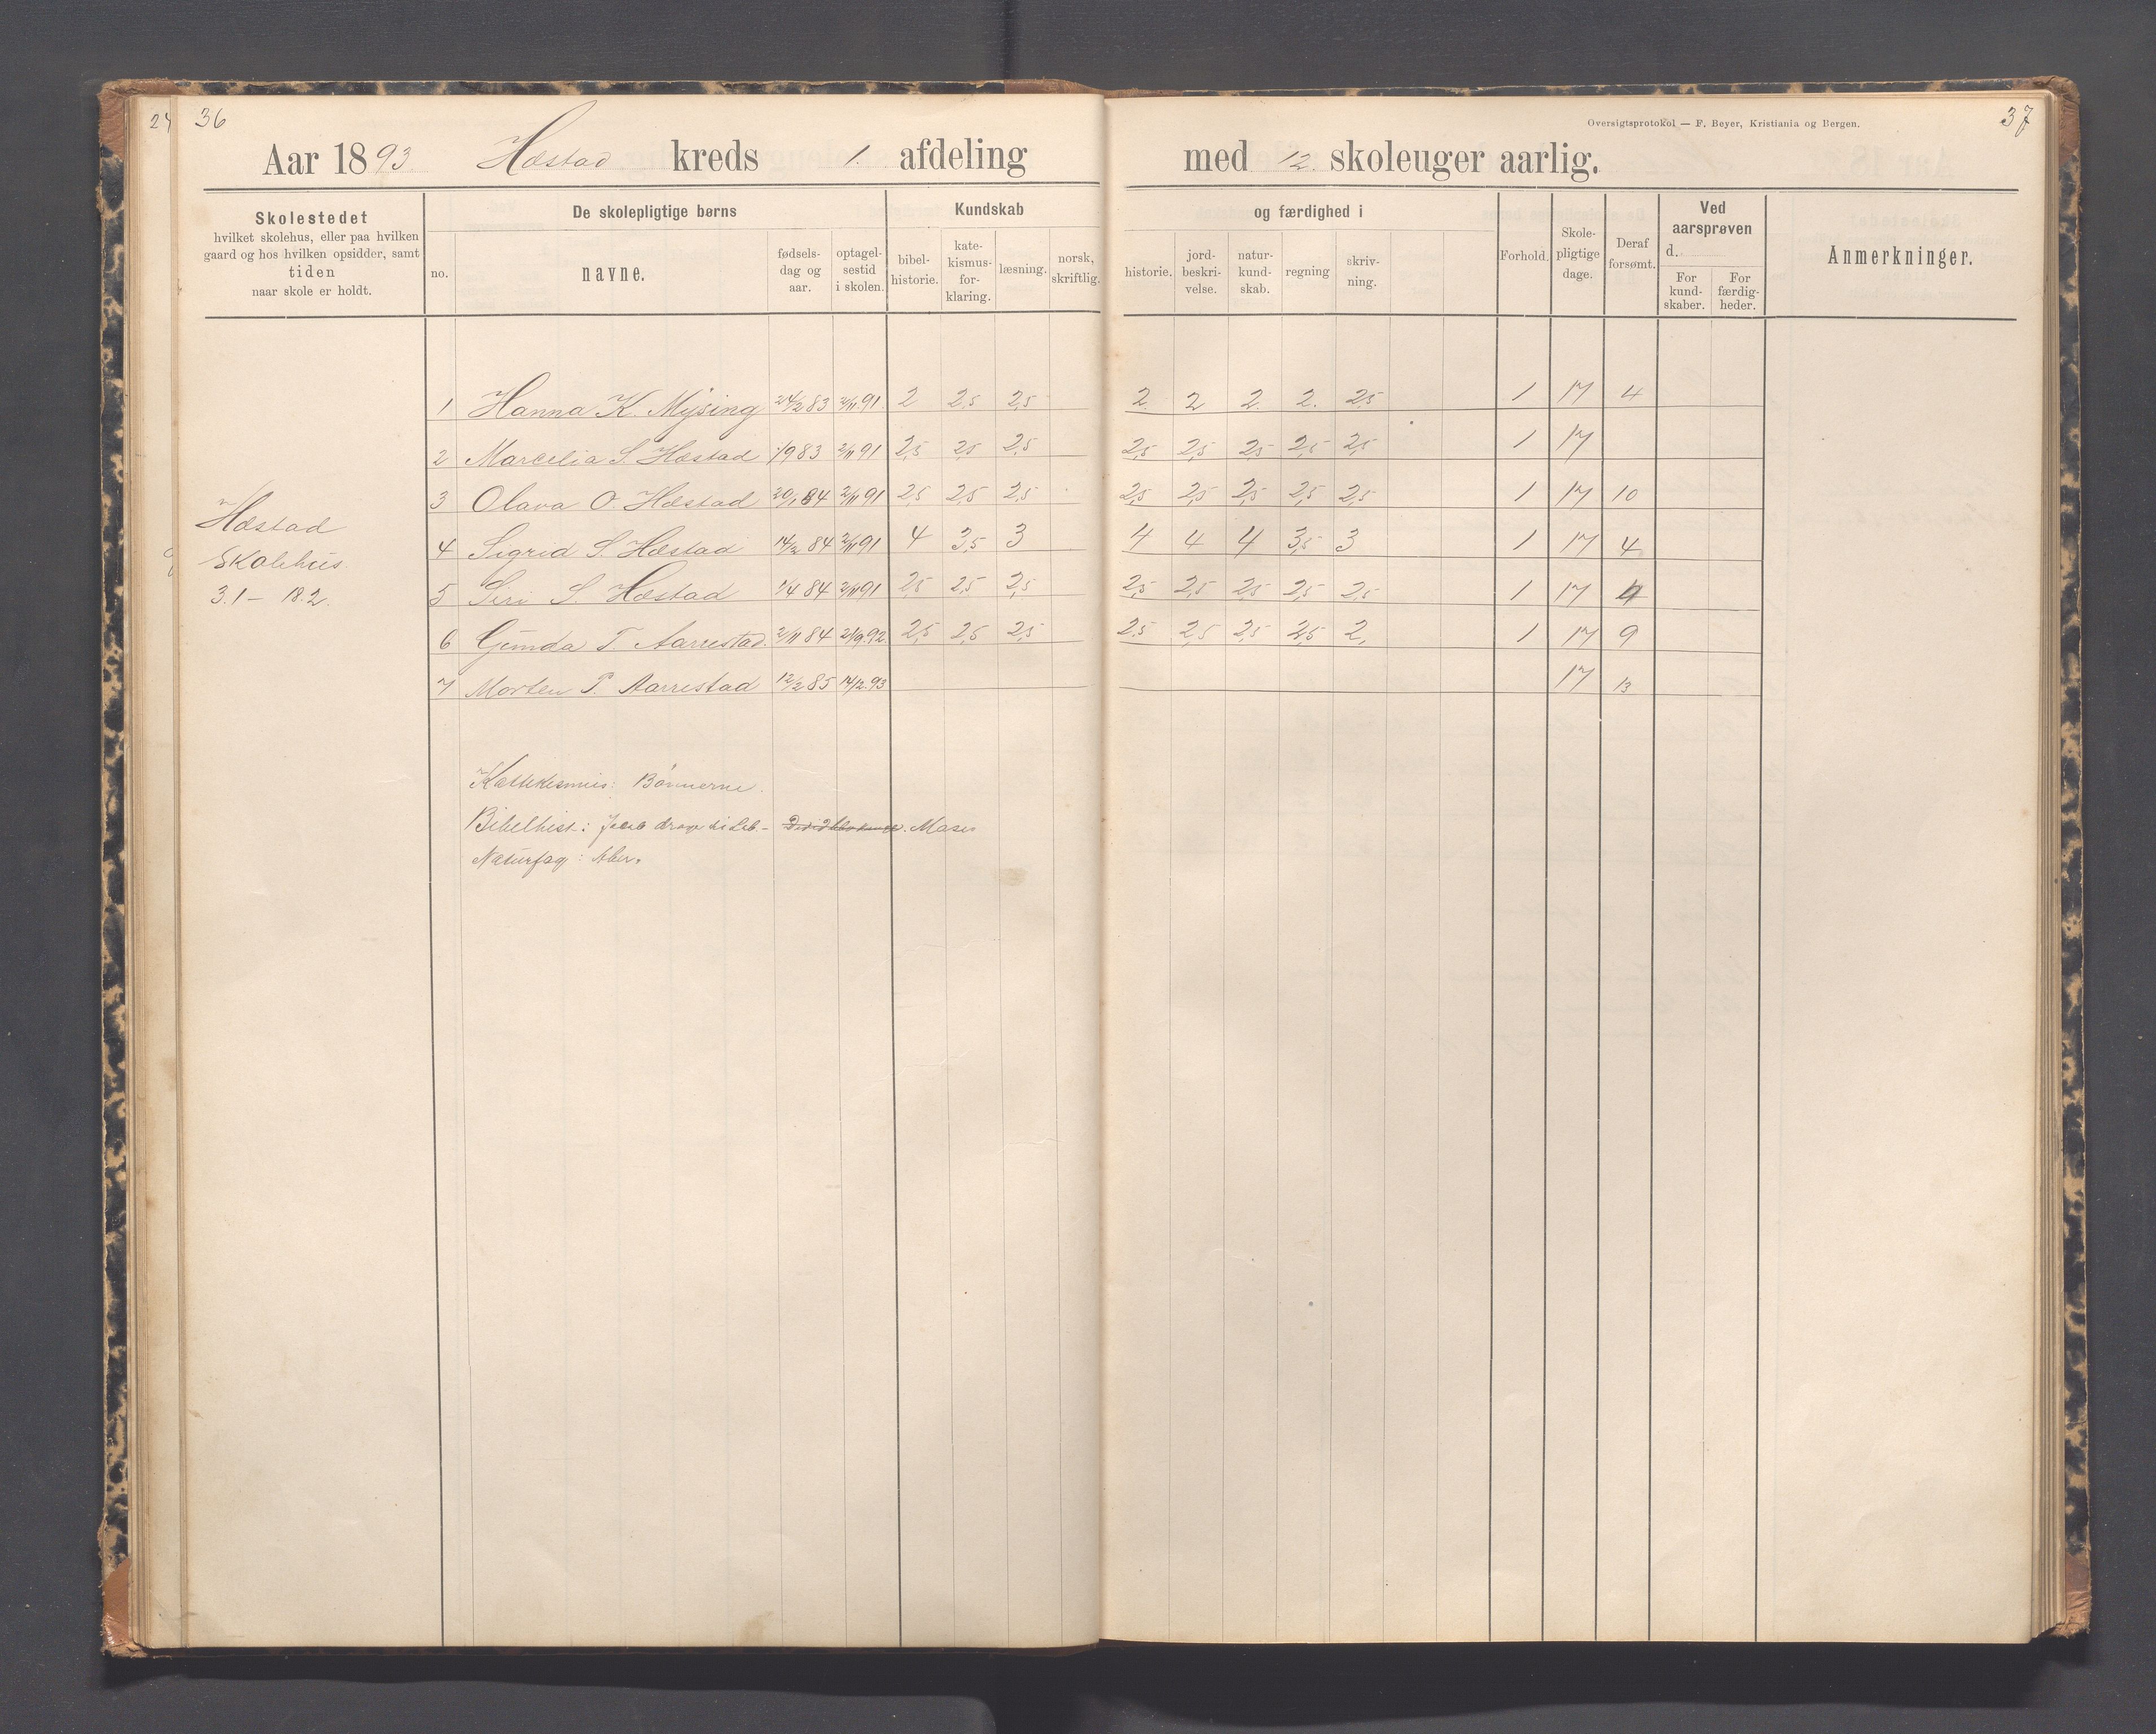 24 36
37
Oversigtsprotokol — F. Beyer, Kristiania og Bergen.
Aar 1893 Hæstad kreds 1. afdeling med 12. skoleuger aarlig.
Skolestedet
hvilket skolehus, eller paa hvilken
gaard og hos hvilken opsidder, samt
tiden
naar skole er holdt.
De skolepligtige børns
no. navne. fødsels-dag og aar. optagel-sestid i skolen.
Kundskab og færdighed i
bibel-historie. kate-kismus-for-klaring. læsning. norsk, skriftlig. historie. jord-beskri-velse. natur-kund-skab. regning skriv-ning.
Forhold. Skole-pligtige dage. Deraf forsømt.
Ved aarsprøven d.
For kund-skaber. For færdig-heder.
Anmerkninger.
1 Hanna K. Mysing 24/2 83 2/11 91 2 2,5 2,5 2. 2 2. 2. 2,5 1 17 4
2 Marcelia S. Hæstad 1/9 83 2/11 91 2,5 2,5 2,5 2,5 2,5 2,5 2,5 2,5 1 17
3 Olava O. Hæstad 20/1 84 2/11 91 2,5 2,5 2,5 2,5 2,5 2,5 2,5 2,5 1 17 10
4 Sigrid S. Hæstad 14/2 84 2/11 91 4 3,5 3 4 4 4 3,5 3 1 17 4
5 Siri S. Hæstad 1/4 84 2/11 91 2,5 2,5 2,5 2,5 2,5 2,5 2,5 2,5 1 17
6 Gunda T. Aarrestad. 2/11 84 21/9.92. 2,5 2,5 2,5 2,5 2,5 2,5 2,5 2, 1 17 9
7 Morten P. Aarrestad 12/2 85 14/2.93 17 13
Hæstad
Skolehus.
3.1 – 18.2.
Kattekesmus: Bønnerne.
Bibelhist.: Jacob drager til – Moses
Naturfag: Aber.